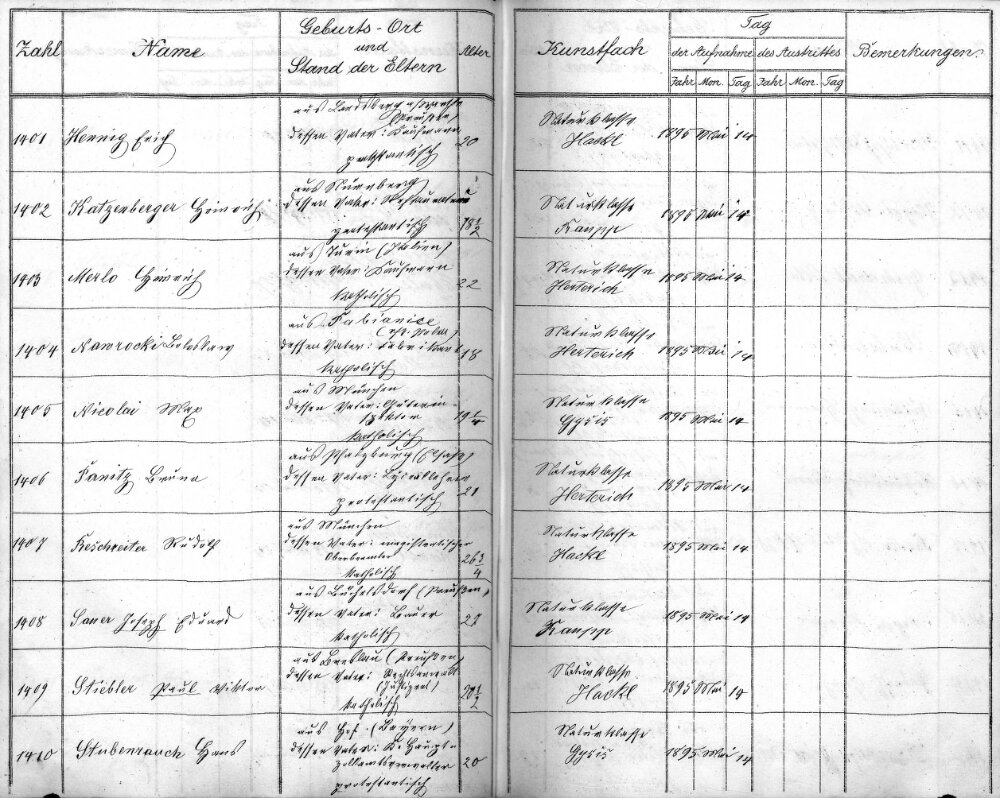 Zahl Name Geburts-Ort und Stand der Eltern Alter Kunstfach Tag der Aufnahme des Austrittes Bemerkungen
Jahr Mon. Tag Jahr Mon. Tag
aus Landsberg a/Warthe
(Preußen)
1401 Hennig Erich dessen Vater: Kaufmann 20 Naturklasse Hackl 1895 Mai 14
protestantisch
aus Nürnberg
1402 Katzenberger Heinrich dessen Vater: Restaurateur 18 1/2 Naturklasse Raupp 1895 Mai 14
protestantisch
aus Turin (Italien)
1403 Merlo Heinrich dessen Vater: Kaufmann 22 Naturklasse Herterich 1895 Mai 14
katholisch
aus Pabianice
(russ. Polen)
1404 Nawrocki Boleslaw dessen Vater: Fabrikant 18 Naturklasse Herterich 1895 Mai 14
katholisch
aus München
1405 Nicolai Max dessen Vater: Güterin-
spektor 19 1/4 Naturklasse Gysis 1895 Mai 14
katholisch
aus Pfalzburg (Elsaß)
1406 Panitz Bruno dessen Vater: 21 Naturklasse Herterich 1895 Mai 14
protestantisch
aus München
1407 Reschreiter Rudolf dessen Vater: magistratischer
Oberbeamter 26 3/4 Naturklasse Hackl 1895 Mai 14
katholisch
aus (Preußen)
1408 Sauer Joseph Eduard dessen Vater: Brauer 23 Naturklasse Raupp 1895 Mai 14
katholisch
aus Breslau (Preußen)
1409 Stiebler Paul Viktor dessen Vater: Rechtsanwalt
(Justizrat) 20 1/2 Naturklasse Hackl 1895 Mai 14
katholisch
aus Hof (Bayern)
1410 Stubenrauch Hans dessen Vater: K. Haupt-
zollamtsverwalter 20 Naturklasse Gysis 1895 Mai 14
protestantisch